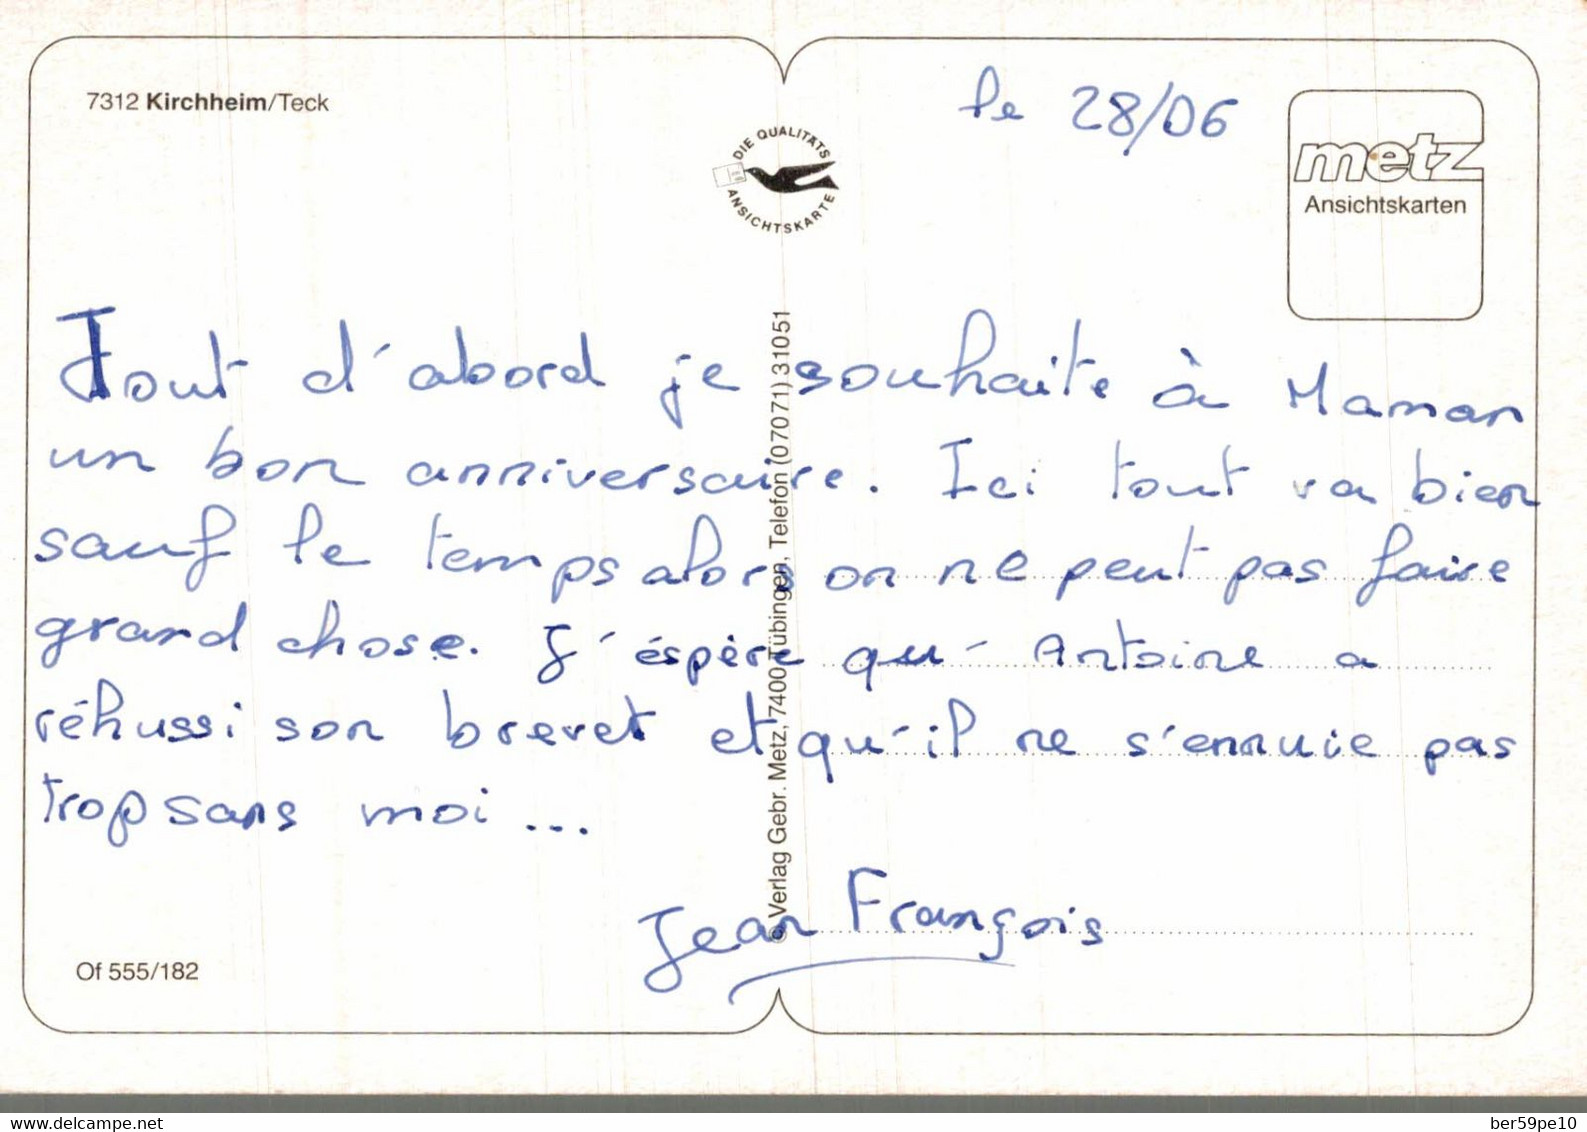 7312 Kirchheim/Teck
DIE QUALITÄTS
ANSICHTSKARTE
le 28/06
metz
Ansichtskarten
Tout d'abord je souhaite à Maman
un bon anniversaire. Ici tout va bien
sauf le temps alors on ne peut pas faire
grand chose. J'éspère qu'Antoine a
réhussi son brevet et qu'il ne s'ennuie pas
trop sans moi...
Jean François
© Verlag Gebr. Metz, 7400 Tübingen, Telefon (07071) 31051
Of 555/182
delcampe.net
ber59pe10